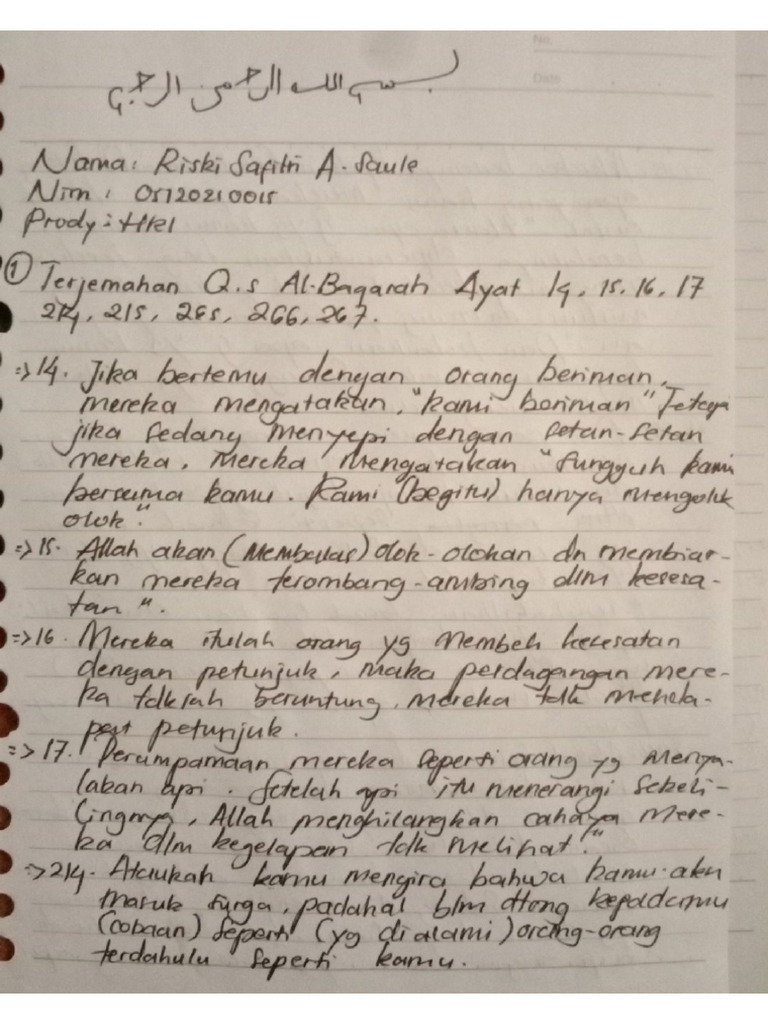 No.
Date
بسم الله الرحمن الرحيم
Nama: Riski Safitri A. Saule
Nim : 05120210015
Prody : HKI
① Terjemahan Q.s Al-Baqarah Ayat 14, 15, 16, 17
214, 215, 265, 266, 267.
=> 14. Jika bertemu dengan orang beriman,
mereka mengatakan, "kami beriman" Tetapi
jika sedang menyepi dengan setan-setan
mereka, mereka mengatakan "sungguh kami
bersama kamu. Kami (begitu) hanya mengolok
olok".
=> 15. Allah akan (membalas) olok-olokan dn membiar-
kan mereka terombang-ambing dlm kesesa-
tan".
=> 16. Mereka itulah orang yg membeli kesesatan
dengan petunjuk, maka perdagangan mere-
ka tdklah beruntung, mereka tdk menda-
pat petunjuk.
=> 17. Perumpamaan mereka seperti orang yg menya-
lakan api. Setelah api itu menerangi sekeli-
lingnya, Allah menghilangkan cahaya mere-
ka dlm kegelapan tdk melihat."
=> 214. Ataukah kamu mengira bahwa kamu akn
masuk surga, padahal blm dtong kepadamu
(cobaan) seperti (yg di alami) orang-orang
terdahulu seperti kamu.